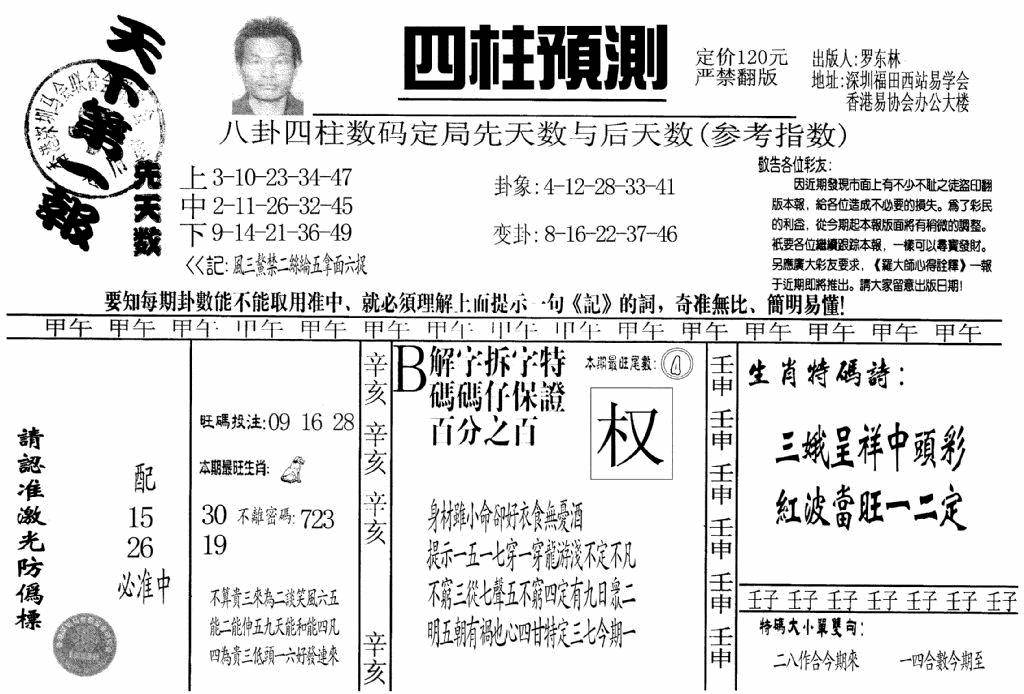 天下第一報
四柱預測
定价120元
严禁翻版
出版人:罗东林
地址:深圳福田西站易学会
香港易协会办公大楼
八卦四柱数码定局先天数与后天数(参考指数)
先天数
上 3-10-23-34-47
中 2-11-26-32-45
下 9-14-21-36-49
<<記: 風三鰲禁二綠綸五拿面六捉
卦象: 4-12-28-33-41
变卦: 8-16-22-37-46
敬告各位彩友:
因近期發現市面上有不少不耻之徒盜印翻
版本報,給各位造成不必要的損失。爲了彩民
的利益,從今期起本報版面將有稍微的調整。
衹要各位繼續跟踪本報,一樣可以尋寶發財。
另應廣大彩友要求,《羅大師心得詮釋》一報
于近期即將推出。請大家留意出版日期!
要知每期卦數能不能取用准中、就必須理解上面提示一句《記》的詞,奇准無比、簡明易懂!
甲午 甲午 甲午 甲午 甲午 甲午 甲午 甲午 甲午 甲午 甲午 甲午 甲午 甲午 甲午
請認准激光防僞標
配
15
26
必准中
旺碼投注:09 16 28
本期最旺生肖:
30 不離密碼:723
19
不算貴三來為二談笑風六五
能二能伸五九天能和能四凡
四為貴三低頭一六好發連來
辛亥 辛亥 辛亥 辛亥
B解字拆字特
碼碼仔保證
百分之百
本期最旺尾數:①
权
身材雖小命卻好衣食無憂酒
提示一五一七穿一穿龍游淺不定不凡
不窮三從七聲五不窮四定有九日眾二
明五朝有禍也心四甘特定三七今期一
壬申 壬申 壬申 壬申 壬申 壬申
生肖特碼詩:
三娥呈祥中頭彩
紅波當旺一二定
壬子 壬子 壬子 壬子 壬子 壬子 壬子
特碼大小單雙句:
二八作合今期來 一四合數今期至